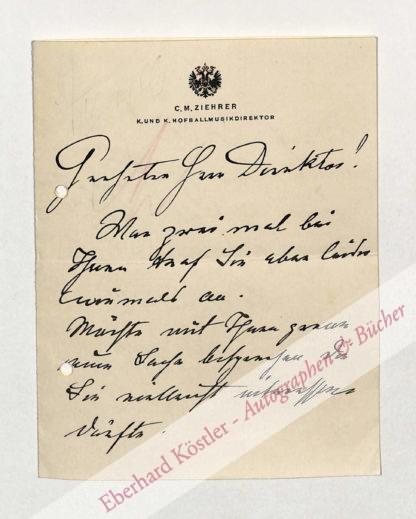 C. M. ZIEHRER
K. UND K. HOFBALLMUSIKDIREKTOR
Geehrter Herr Direktor!
War zwei mal bei
Ihnen traf Sie aber leider
niemals an.
Möchte mit Ihnen gerne
eine Sache besprechen die
Sie vielleicht interessieren
dürfte.
Eberhard Köstler - Autographen & Bücher